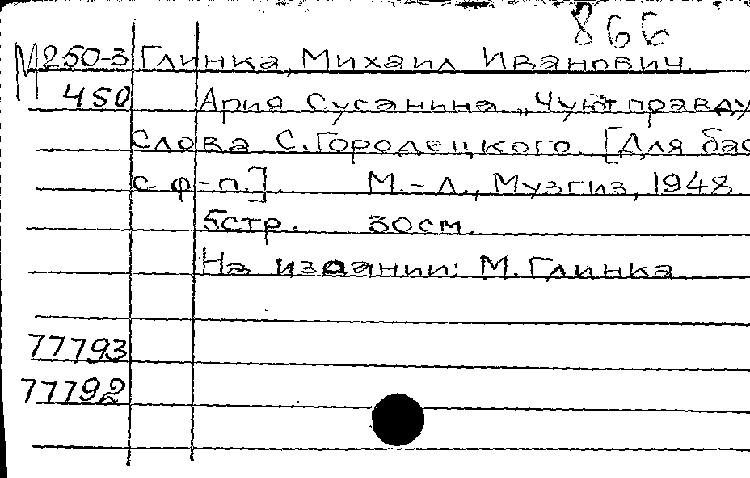 866
М250-3 Глинка, Михаил Иванович.
450 Ария Сусанина „Чуют правду
Слова С. Городецкого. [Для бас
с ф-п.]. М.-Л., Музгиз, 1948
5стр. 30см.
На издании: М. Глинка
77793
77792